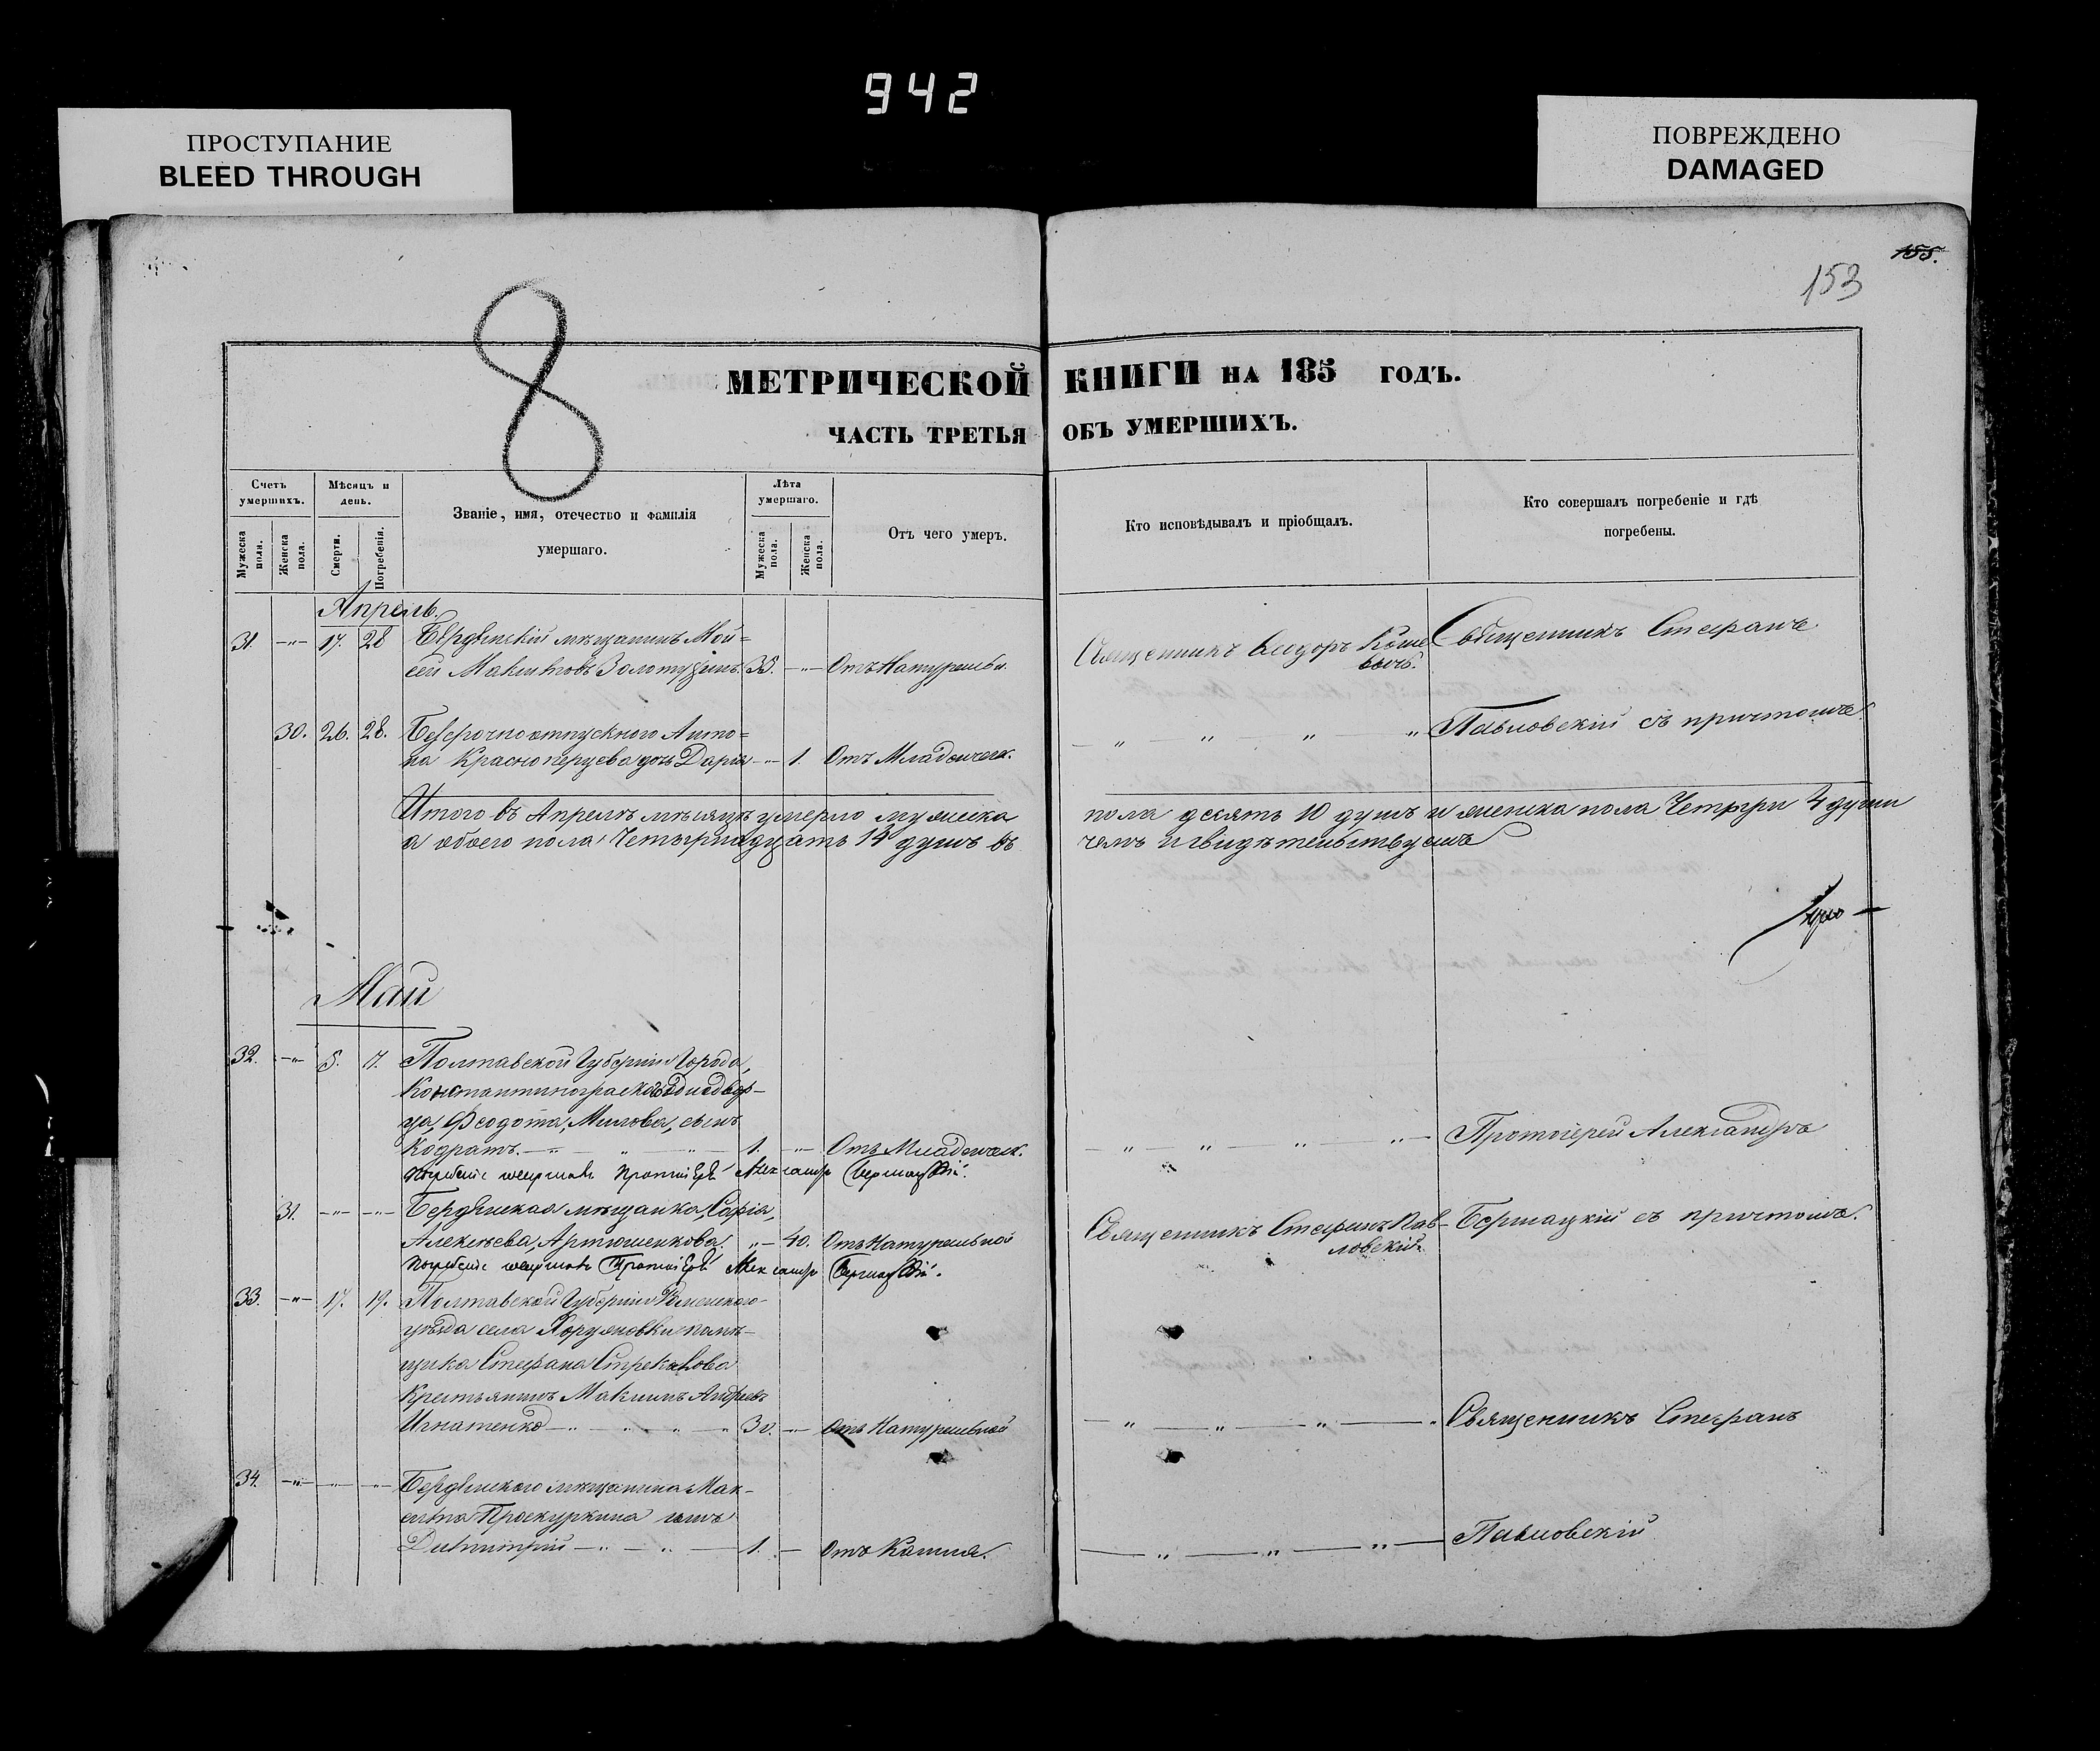 942
ПРОСТУПАНИЕ
BLEED THROUGH
ПОВРЕЖДЕНО
DAMAGED
155.
153
8
МЕТРИЧЕСКОЙ КНИГИ НА 185 ГОДЪ.
ЧАСТЬ ТРЕТЬЯ ОБЪ УМЕРШИХЪ.
Счетъ умершихъ.
Мужеска пола.
Женска пола.
Мѣсяцъ и день.
Смерти.
Погребенія.
Званіе, имя, отечество и фамилія
умершаго.
Лѣта умершаго.
Мужеска пола.
Женска пола.
Отъ чего умеръ.
Кто исповѣдывалъ и пріобщалъ.
Кто совершалъ погребеніе и гдѣ
погребены.
Апрель.
31. -„- 17. 28 Бердянскій мѣщанинъ Мой=
сей Золотухинъ. 35. -„- Отъ Натуральн. Священникъ Священникъ Стефанъ
30. 26. 28. Безсрочноотпускного Анто=
на Красноперцева дочь Дарія -„- 1. Отъ Младенческ. „ „ „ „ Павловскій съ причтомъ.
Итого въ Апрелѣ мѣсяцѣ умерло мужеска пола десять 10 душъ и женска пола Четыри 4 души
а обоего пола Четырнадцать 14 душъ въ чемъ и свидѣтельствуемъ
Май
32. -„- 5. 7. Полтавской Губерніи Города,
Константинограда Однодвор-
ца, Феодота, сынъ
Кодратъ. 1. -„- Отъ Младенческ. „ „ „ „ Протоіерей Александръ
Протоіерей Александръ
31. -„- -„- Бердянская мѣщанка, Софія,
Алексѣева, Артюшенкова. „- 40. Отъ Натуральной Священникъ Стефанъ Пав-
ловскій. Бершацкій съ причтомъ.
Протоіерей Александръ
33. -„- 17. 19. Полтавской Губерніи Роменскаго
уѣзда села Хоружовки помѣ-
щика Стефана Стрекалова
Крестьянинъ Максимъ Андреевъ
Игнатенко 30. -„- Отъ Натуральной „ „ „ „ Священникъ Стефанъ
34. -„- -„- -„- Бердянскаго мѣщанина Мак-
сима Проскуркина сынъ
Димитрій 1. - Отъ Кашля. „ „ „ Павловскій